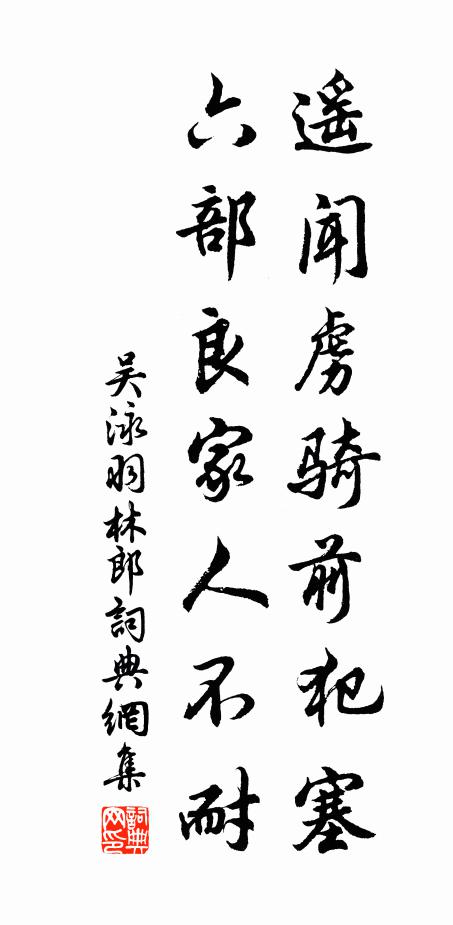 遥闻虏骑前犯塞
六部良家人不耐
吴泳羽林郎詞典網集
詞典网印